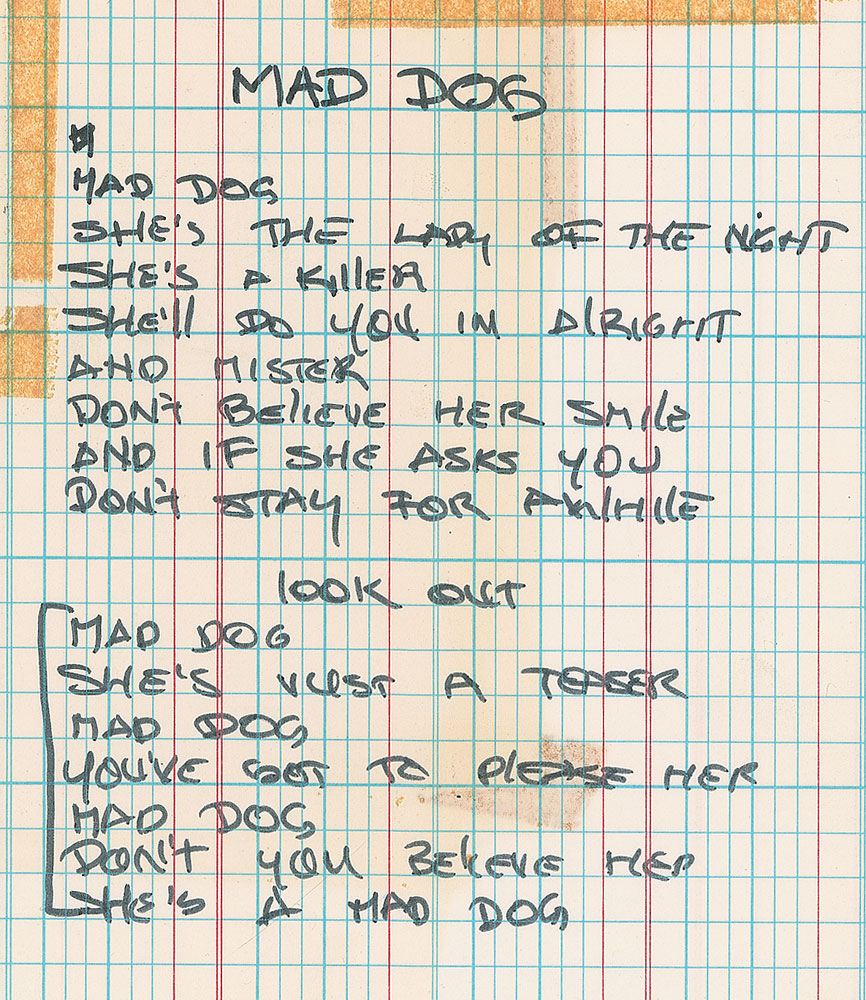 MAD DOG
MAD DOG
SHE'S THE LADY OF THE NIGHT
SHE'S A KIllER
SHE'll DO YOU IN AlRIGHT
AND MISTER
DON'T BElIEVE HER SMIlE
AND IF SHE ASKS YOU
DON'T STAY FOR AWHILE
lOOK OUT
MAD DOG
SHE'S JUST A TEASER
MAD DOG
YOU'VE GOT TO PlEASE HER
MAD DOG
DON'T YOU BElIEVE HER
SHE'S A MAD DOG